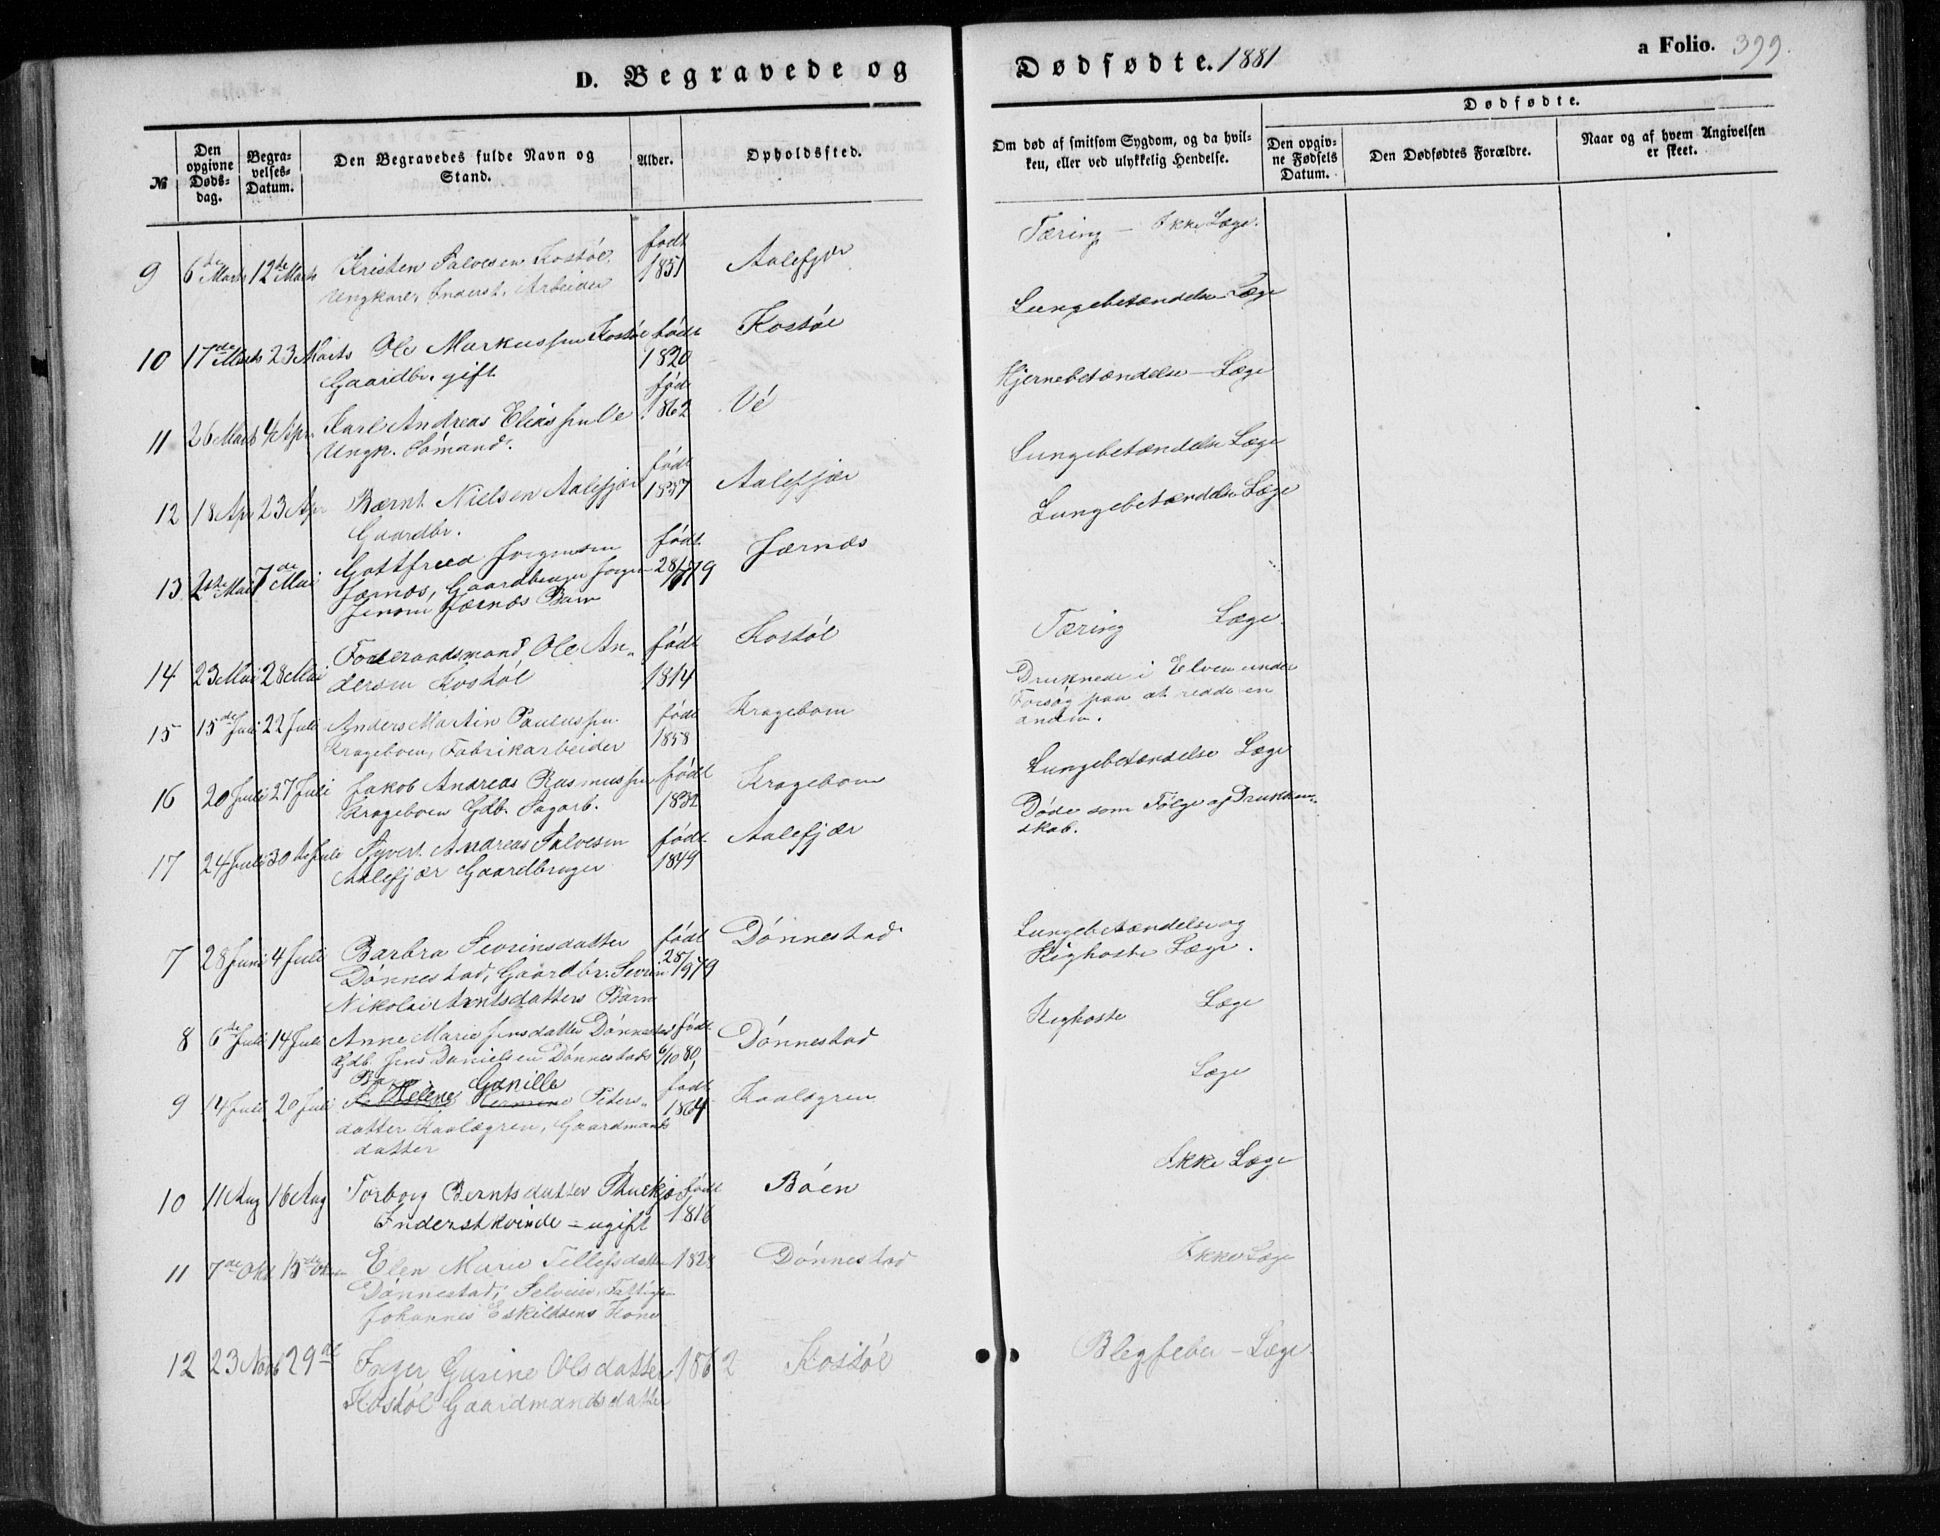 D. Begravede og Dødfødte. 1881
a Folio. 399.
№
Den opgivne Dødsdag.
Begravelses-Datum.
Den Begravedes fulde Navn og Stand.
Alder.
Opholdssted.
Om død af smitsom Sygdom, og da hvilken, eller ved ulykkelig Hendelse.
Dødfødte.
Den opgivne Fødsels Datum.
Den Dødfødtes Forældre.
Naar og af hvem Angivelsen er skeet.
9 6te Marts 12te Marts Kristen Salvesen Kostøl. født 1851 Aalefjær Tæring – Ikke Læge.
Ungkarl, Inderst, Arbeider
10 17de Marts 23 Marts Ole Markussen Kostøl født 1820 Kostøl Lungebetændelse Læge
Gaardbr. gift.
11 26 Marts 4 Apr. Karl Andreas Eliassen Ve fød 1862 Vé Hjernebetændelse – Læge
Ungk. Sømand.
12 18 Apr 23 Apr Bærnt Nielsen Aalefjær født 1837 Aalefjær Lungebetændelse Læge
Gaardbr.
13 2den Mai 7de Mai Gottfried Jørgensen født 28/ 79 Jærnæs Lungebetændelse Læge
Jærnæs, Gaardbruger Jørgen
Jensen Jærnæs Barn
14 23 Mai 28 Mai Føderaadsmand Ole An- født 1814 Kostøl Tæring Læge.
dersen Kostøl
15 15de Juli 22 Juli Anders Martin Paulussen født 1858 Krageboen Druknede i Elven under
Krageboen, Fabrikarbeider Forsøg paa at redde en
anden.
16 20 Juli 27 Juli Jakob Andreas Rasmussen født 1832 Krageboen Lungebetændelse Læge
Krageboen Gdb. Sagarb.
17 24 Juli 30 Juli Syvert Andreas Salvesen født 1849 Aalefjær Døde som Følge af Drukken-
Aalefjær Gaardbruger skab.
7 28 Juni 4 Juli Barbra Sevrinsdatter født 28/9 79 Dønnestad Lungebetændelse og
Dønnestad, Gaardbr. Sevrin Kighoste Læge.
Nikolai Arntsdatters Barn
8 6te Juli 14 Juli Anne Marie Jensdatter Dønnestad født 6/10 80 Dønnestad Kighoste Læge
Gdb. Jens Danielsen Dønnestads
Barn
9 14 Juli 20 Juli Helene Gunille Peders- født 1864 Kaalegren Læge
datter Kaalegren, Gaardmands
datter
10 11 Aug 16 Aug Torborg Berntsdatter født 1816 Bøen Ikke Læge
Inderstkvinde – ugift
11 7de Okt 15de Okt Elen Marie Tellefsdatter 182 Dønnestad Ikke Læge
Dønnestad, Selveier,
Johannes Eskildsens Kone
12 23 Nov 29de Inger Gurine Olsdatter 1862 Kostøl Blegfeber – Læge.
Kostøl Gaardmandsdatter